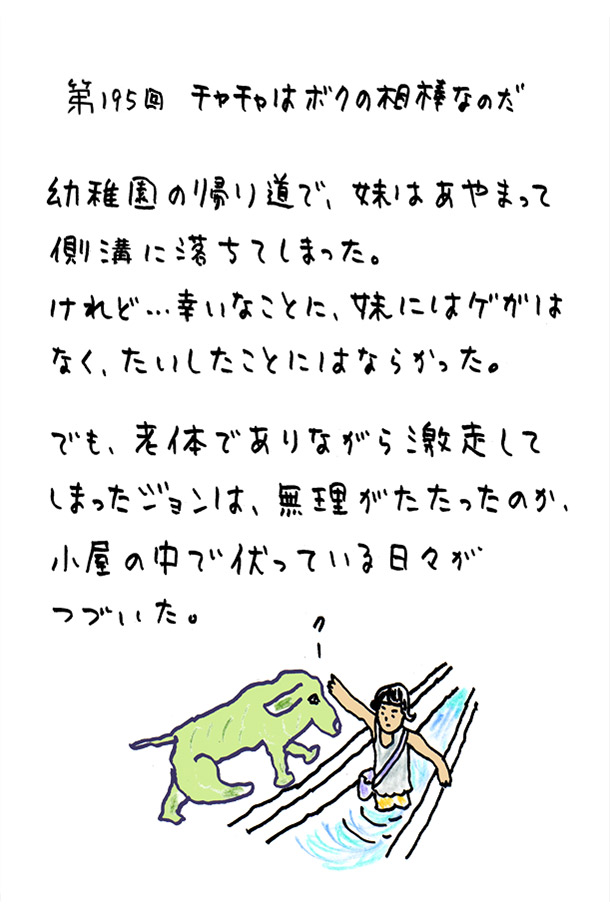 第195回 チャチャはボクの相棒なのだ
幼稚園の帰り道で、妹はあやまって
側溝に落ちてしまった。
けれど…幸いなことに、妹にはケガは
なく、たいしたことにはならかった。
でも、老体でありながら激走して
しまったジョンは、無理がたたったのか、
小屋の中で伏っている日々が
つづいた。
クー